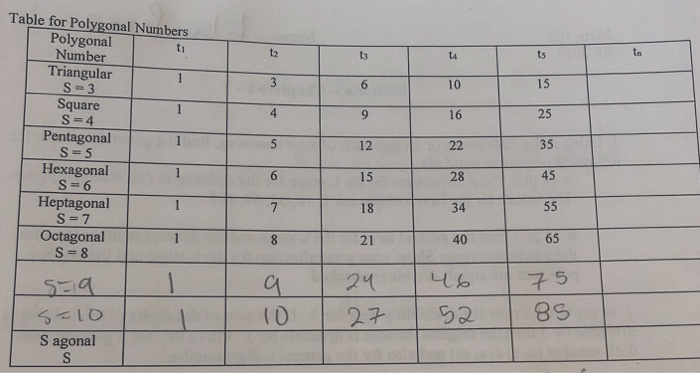 Table for Polygonal Numbers
Polygonal Number t1 t2 t3 t4 t5 tn
Triangular S = 3 1 3 6 10 15
Square S = 4 1 4 9 16 25
Pentagonal S = 5 1 5 12 22 35
Hexagonal S = 6 1 6 15 28 45
Heptagonal S = 7 1 7 18 34 55
Octagonal S = 8 1 8 21 40 65
S=9 1 9 24 46 75
S=10 1 10 27 52 85
S agonal S